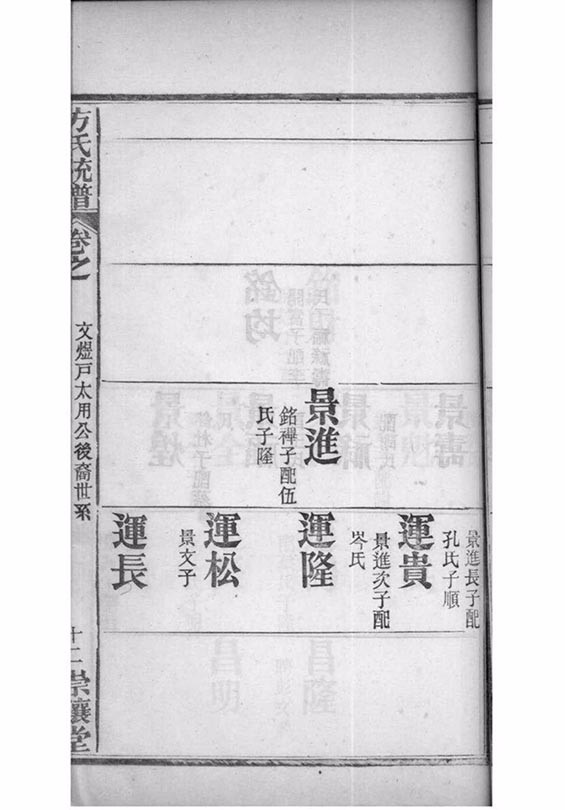 景進
銘禪子配伍
氏子隆
景進長子配
孔氏子順
運貴
景進次子配
岑氏
運隆
運松
景文子
運長
方氏統譜
卷之
文戶太用公後裔世系
十二
崇讓堂